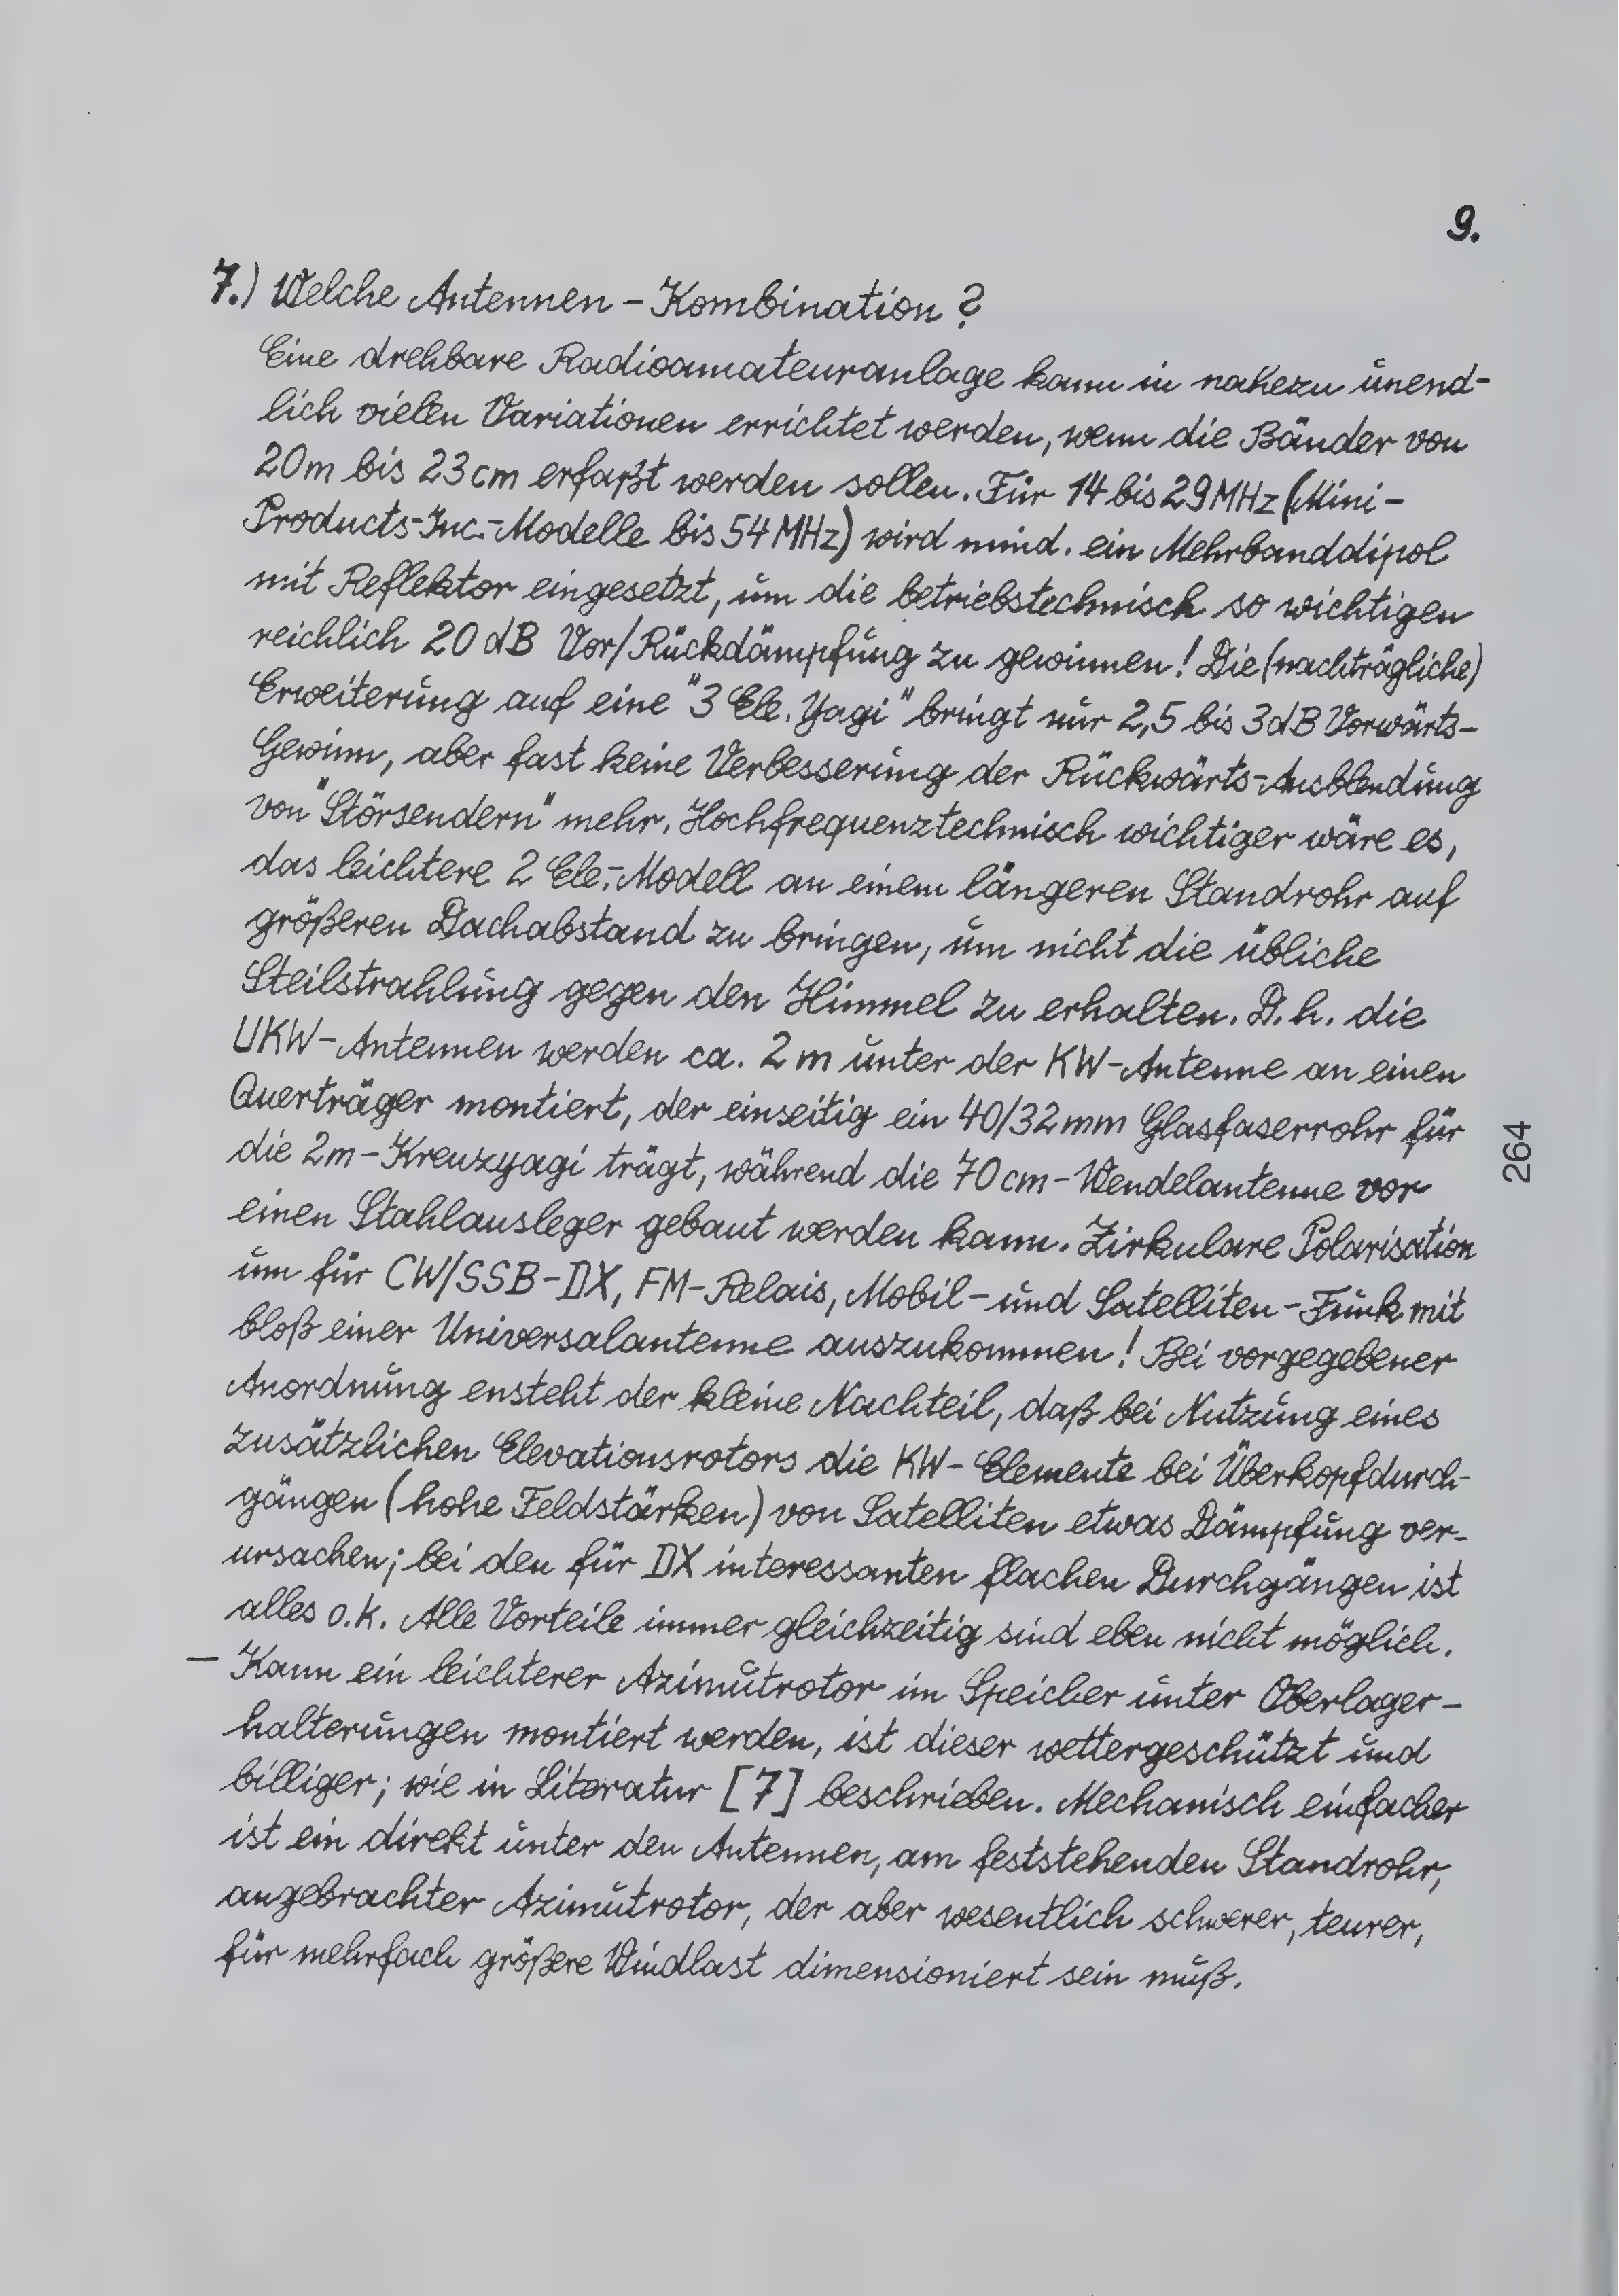 9.
7.) Welche Antennen-Kombination?
Eine drehbare Radioamateuranlage kann in nahezu unend-
lich vielen Variationen errichtet werden, wenn die Bänder von
20m bis 23cm erfaßt werden sollen. Für 14 bis 29 MHz (Mini-
Products-Inc.-Modelle bis 54 MHz) wird mind. ein Mehrbanddipol
mit Reflektor eingesetzt, um die betriebstechnisch so wichtigen
reichlich 20 dB Vor/Rückdämpfung zu gewinnen! Die (nachträgliche)
Erweiterung auf eine "3 Ele. Yagi" bringt nur 2,5 bis 3dB Vorwärts-
Gewinn, aber fast keine Verbesserung der Rückwärts-Ausblendung
von "Störsendern" mehr. Hochfrequenztechnisch wichtiger wäre es,
das leichtere 2 Ele.-Modell an einem längeren Standrohr auf
größeren Dachabstand zu bringen, um nicht die übliche
Steilstrahlung gegen den Himmel zu erhalten. D.h. die
UKW-Antennen werden ca. 2 m unter der KW-Antenne an einen
Querträger montiert, der einseitig ein 40/32mm Glasfaserrohr für
die 2m-Kreuzyagi trägt, während die 70cm-Wendelantenne vor
einen Stahlausleger gebaut werden kann. Zirkulare Polarisation
um für CW/SSB-DX, FM-Relais, Mobil- und Satelliten-Funk mit
bloß einer Universalantenne auszukommen! Bei vorgegebener
Anordnung ensteht der kleine Nachteil, daß bei Nutzung eines
zusätzlichen Elevationsrotors die KW-Elemente bei Überkopfdurch-
gängen (hohe Feldstärken) von Satelliten etwas Dämpfung ver-
ursachen; bei den für DX interessanten flachen Durchgängen ist
alles o.k. Alle Vorteile immer gleichzeitig sind eben nicht möglich.
— Kann ein leichterer Azimutrotor im Speicher unter Oberlager-
halterungen montiert werden, ist dieser wettergeschützt und
billiger; wie in Literatur [7] beschrieben. Mechanisch einfacher
ist ein direkt unter den Antennen, am feststehenden Standrohr,
angebrachter Azimutrotor, der aber wesentlich schwerer, teurer,
für mehrfach größere Windlast dimensioniert sein muß.
264